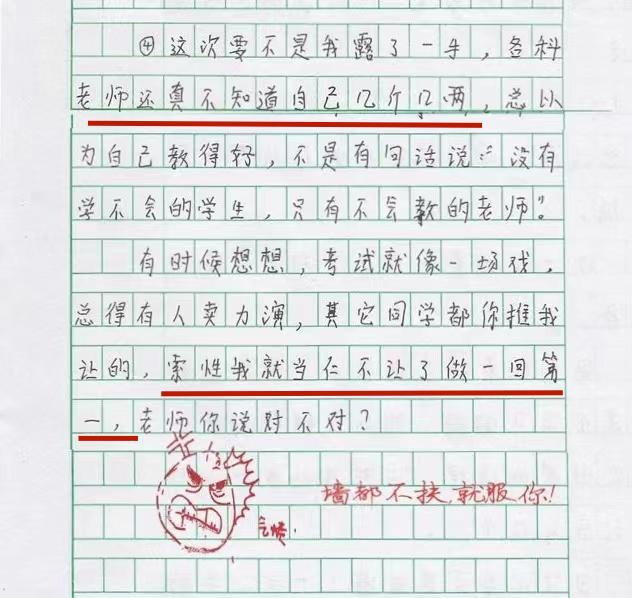 ④这次要不是我露了一手，各科
老师还真不知道自己几斤几两，总以
为自己教得好，不是有句话说：“没有
学不会的学生，只有不会教的老师”。
有时候想想，考试就像一场戏，
总得有人卖力演，其它同学都你推我
让的，索性我就当仁不让了做一回第
一，老师你说对不对？
墙都不扶，就服你！
气愤.